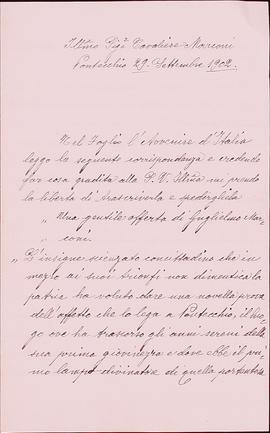 Illmo Sigr Cavaliere Marconi
Pontecchio 29. Settembre 1902.
Nel Foglio l'Avvenire d'Italia
leggo la seguente corrispondenza e credendo
far cosa gradita alla S. V. Illma mi prendo
la libertà di trascriverla e spedirgliela
„ Una gentile offerta di Guglielmo Mar-
coni.
„ L'insigne scienzato concittadino che in
mezzo ai suoi trionfi non dimentica la
patria ha voluto dare una novella prova
dell'affetto che lo lega a Pontecchio, il luo-
go ove ha trascorso gli anni sereni della
sua prima giovinezza e dove ebbe il pri-
mo lampo divinatore di quella portentosa